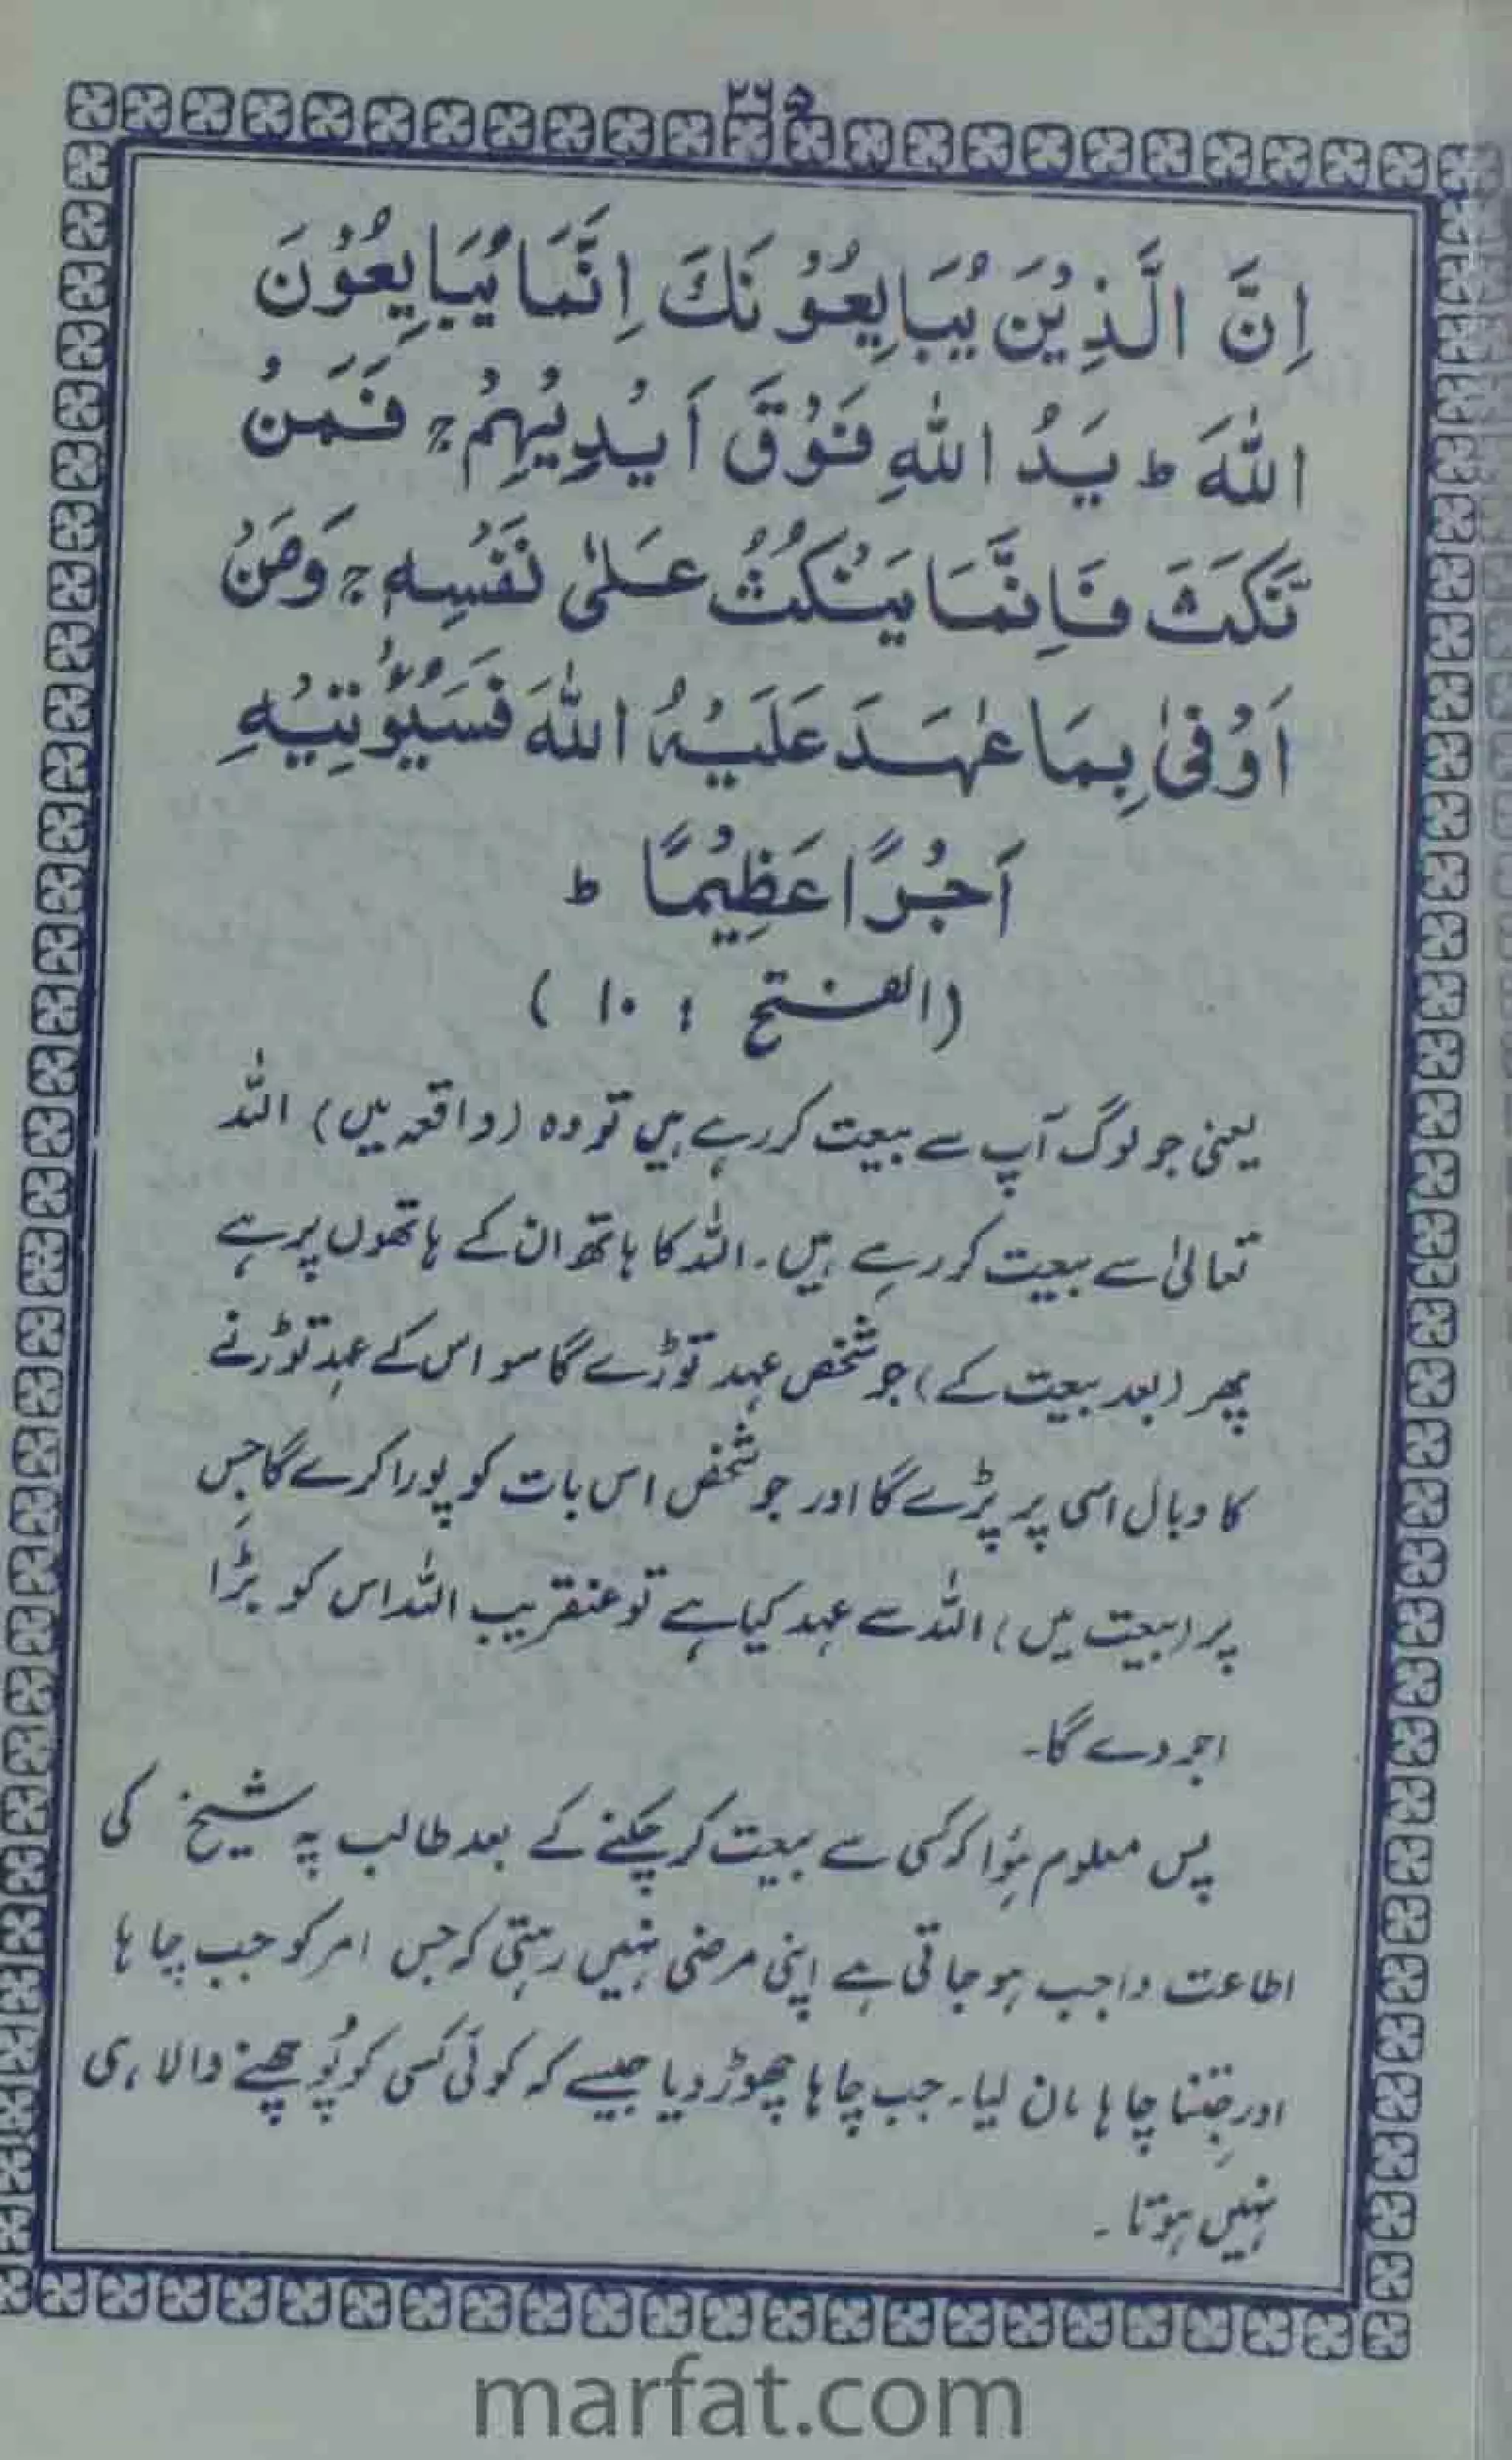 ۲۶۵
اِنَّ الَّذِيْنَ يُبَايِعُوْنَكَ اِنَّمَا يُبَايِعُوْنَ
اللّٰهَ ط يَدُ اللّٰهِ فَوْقَ اَيْدِيْهِمْ ج فَمَنْ
نَّكَثَ فَاِنَّمَا يَنْكُثُ عَلٰى نَفْسِهٖ ج وَمَنْ
اَوْفٰى بِمَا عٰهَدَ عَلَيْهُ اللّٰهَ فَسَيُؤْتِيْهِ
اَجْرًا عَظِيْمًا ط
(الفتح : ۱۰ )
یعنی جو لوگ آپ سے بیعت کر رہے ہیں تو وہ (واقعہ میں) اللہ
تعالیٰ سے بیعت کر رہے ہیں۔ اللہ کا ہاتھ ان کے ہاتھوں پر ہے
پھر (بعد بیعت کے) جو شخص عہد توڑے گا سو اس کے عہد توڑنے
کا وبال اسی پر پڑے گا اور جو شخص اس بات کو پورا کرے گا جس
پر (بیعت میں) اللہ سے عہد کیا ہے تو عنقریب اللہ اس کو بڑا
اجر دے گا۔
پس معلوم ہؤا کہ کسی سے بیعت کر چکنے کے بعد طالب پہ شیخ کی
اطاعت واجب ہو جاتی ہے اپنی مرضی نہیں رہتی کہ جس امر کو جب چاہا
اور جتنا چاہا مان لیا۔ جب چاہا چھوڑ دیا جیسے کہ کوئی کسی کو پُوچھنے والا ہی
نہیں ہوتا۔
marfat.com